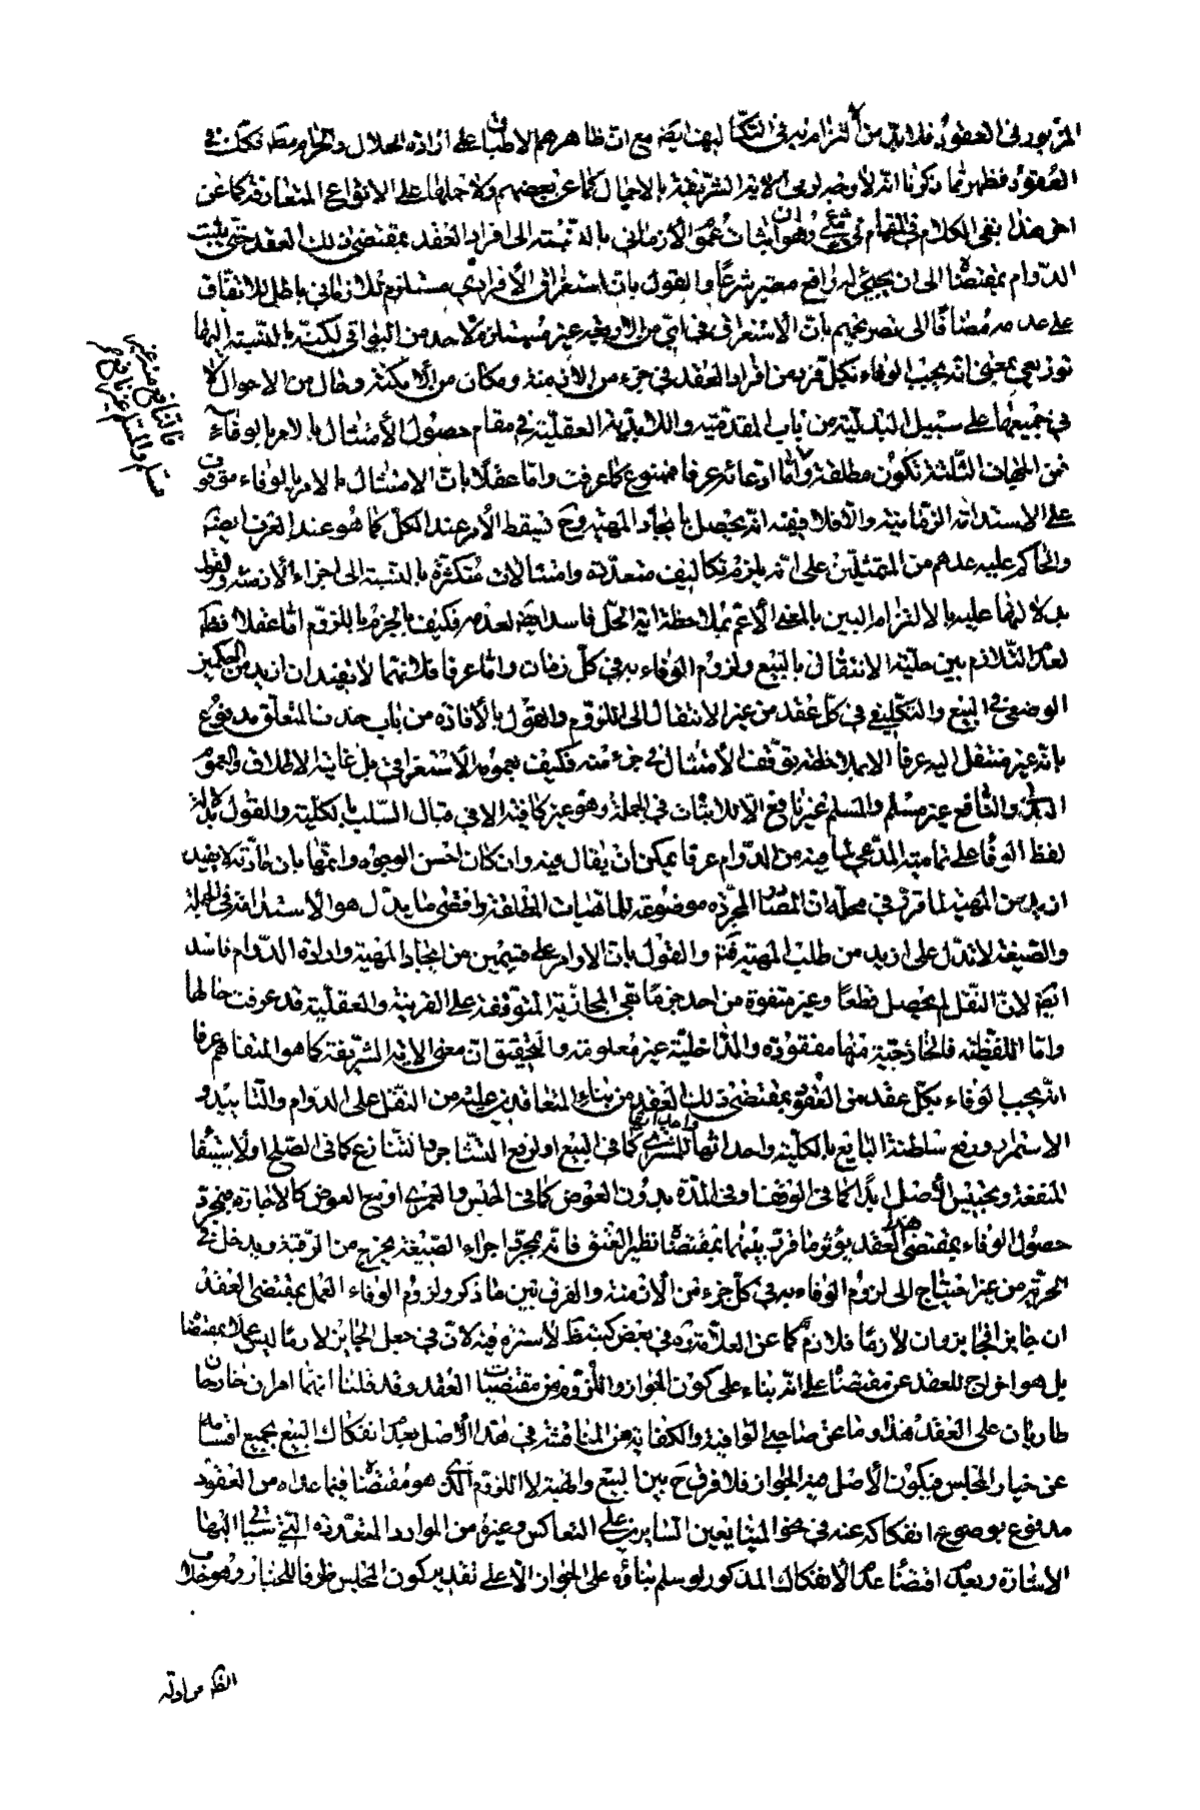 المزبور في العقود فلا بد من التزام به في التكاليف ايضا مع ان ظاهرهم الاطباق على ارادة الحلال والحرام فكك في
العقود فظهر مما ذكرنا انه لا وجه لرمي الاية الشريفة بالاجمال كما عن بعضهم ولا حملها على الانواع المتعارفة كما عن
اخر هذا بقي الكلام في المقام في شيء وهو ان اثبات عموم الأزماني بالنسبة الى افراد العقد بمقتضى ذلك العقد حتى يثبت
الدوام بمقتضاه الى ان يجيء له رافع معتبر شرعا والقول بان استغراق الأفرادي مستلزم للازماني باطل للاتفاق
على عدمه مضافا الى تصريحهم بان الاستغراق في اي من الامور غير مستلزم لاحد من البواقي لكنه بالنسبة اليها
توزيعي بمعنى انه يجب الوفاء بكل فرد من افراد العقد في جزء من الازمنة ومكان من الامكنة وحال من الاحوال لا
في جميعها على سبيل البدلية من باب المقدمية واللابدية العقلية في مقام حصول الأمتثال بالامر بالوفاء
فمن الجهات الثلثة تكون مطلقة واما ادعائه عرفا فممنوع كما عرفت واما عقلا بان الامتثال بالامر بالوفاء موقوف
على الاستدامة الزمانية والا فلا ففيه انه يحصل بايجاد المهية وح فيسقط الأمر عند الكل كما هو عند العرف ايضا
والحاكم عليه عدهم من الممتثلين على انه يلزم تكاليف متعددة وامتثالات متكثرة بالنسبة الى اجزاء الأزمنة والقول
بدلالتها عليه بالالتزام البين بالمعنى الأعم بملاحظة اية الحل فاسد ايضا لعدمه فكيف بالجزم باللزوم اما عقلا فظ
لعدم التلازم بين حلية الانتقال بالبيع ولزوم الوفاء به في كل زمان واما عرفا فلانهما لا يفيدان ازيد من الحكمين
الوضعي في البيع والتكليفي في كل عقد من غير الانتقال الى اللزوم والقول بالأفادة من باب حذف المتعلق مدفوع
بانه غير منتقل اليه عرفا الا بملاحظة توقف الأمتثال في جزء منه فكيف بعموم الأستغراقي بل غايته الاطلاق والعموم
البدلي والنافع غير مسلم والمسلم غير نافع الا للاثبات في الجملة وهو غير كافية الا في قبال السلب بالكلية والقول بدلالة
لفظ الوفا على تمامية المدعى لما فيه من الدوام عرفا يمكن ان يقال فيه وان كان احسن الوجوه وامتنها بان مادته لا يفيد
ازيد من المهية لما قرر في محله ان المصادر المجردة موضوعة للماهيات المطلقة واقصى ما يدل هو الأستدامة في الجملة
والصيغة لا تدل على ازيد من طلب المهية فتم والقول بان الاوامر على قسمين من ايجاد المهية وارادة الدوام فاسد
ايضا لان النقل لم يحصل قطعا وغير متفوه من احد جزما بقي المجازية المتوقفة على القرينة والعقلية قد عرفت حالها
واما اللفظية فالخارجية منها مفقودة والداخلية غير معلومة والتحقيق ان معنى الاية الشريفة كما هو المتفاهم عرفا
انه يجب الوفاء بكل عقد من العقود بمقتضى ذلك العقد من بناء المتعاقدين عليه من النقل على الدوام والتابيد و
الاستمرار ورفع سلطنة البايع بالكلية واحداثها للمشتري كما في البيع او لرفع التشاجر والتنازع كما في الصلح او لاستيفاء
المنفعة وتحبيس الأصل ابدا كما في الوقف او في المدة بدون العوض كما في الحبس والعمرى او مع العوض كالاجارة فبمجرد
حصول الوفاء بمقتضى هذا العقد يؤثر ما قرر بينهما بمقتضاه نظير العتق فانه بمجرد اجراء الصيغة يخرج من الرقية ويدخل في
الحرية من غير احتياج الى لزوم الوفاء به في كل جزء من الأزمنة والفرق بين ما ذكر ولزوم الوفاء العمل بمقتضى العقد
ان جايزا فجايز وان لازما فلازم كما عن العلامة ره في بعض كتبه ظ لا سترة فيه لان في جعل الجايز لازما ليس عملا بمقتضاه
بل هو اخراج للعقد عن مقتضاه على انه بناء على كون الجواز واللزوم من مقتضيات العقد وقد قلنا انهما امران خارجان
طاريان على العقد هذا وما عن صاحبي الوافية والكفاية من المناقشة في هذا الأصل بعدم انفكاك البيع بجميع اقسامه
عن خيار المجلس فيكون الأصل فيه الجواز فلا فرق ح بين البيع والهبة لا اللزوم الذي هو مقتضاه فيما عداه من العقود
مدفوع بوضوح انفكاكه عنه في نحو المتبايعين السايرين على التعاكس وغيره من الموارد المتعددة التي سياتي اليها
الاشارة وبعدم اقتضاء عدم الأنفكاك المذكور لو سلم بناؤه على الجواز الا على تقدير كون المجلس ظرفا للخيار وهو خلاف
فالنافع منه غير
مسلم والمسلم غير نافع
واحداثها
الظ من ادلته